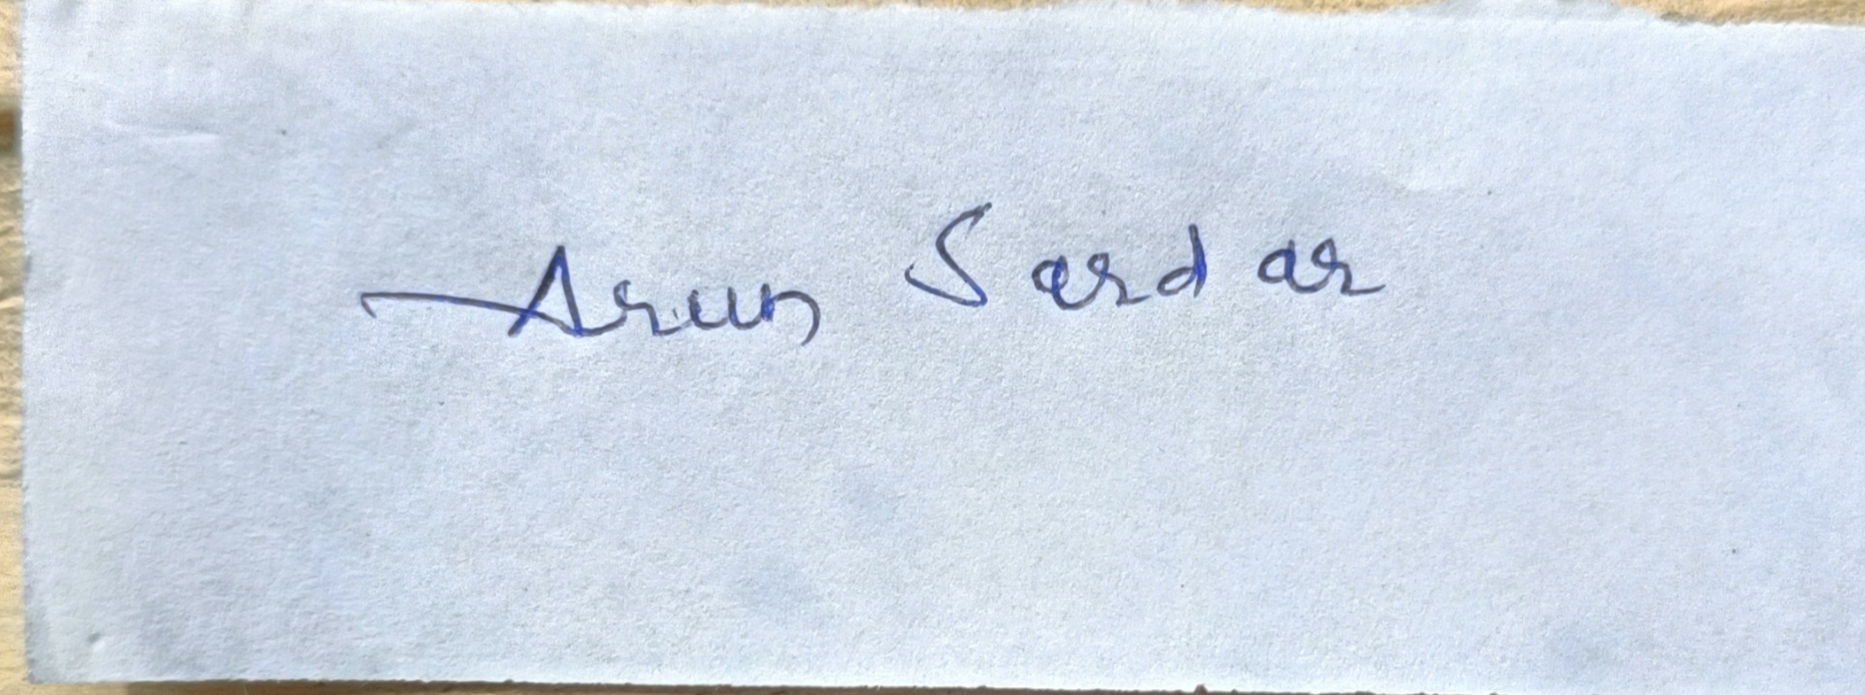 Arun Sardar